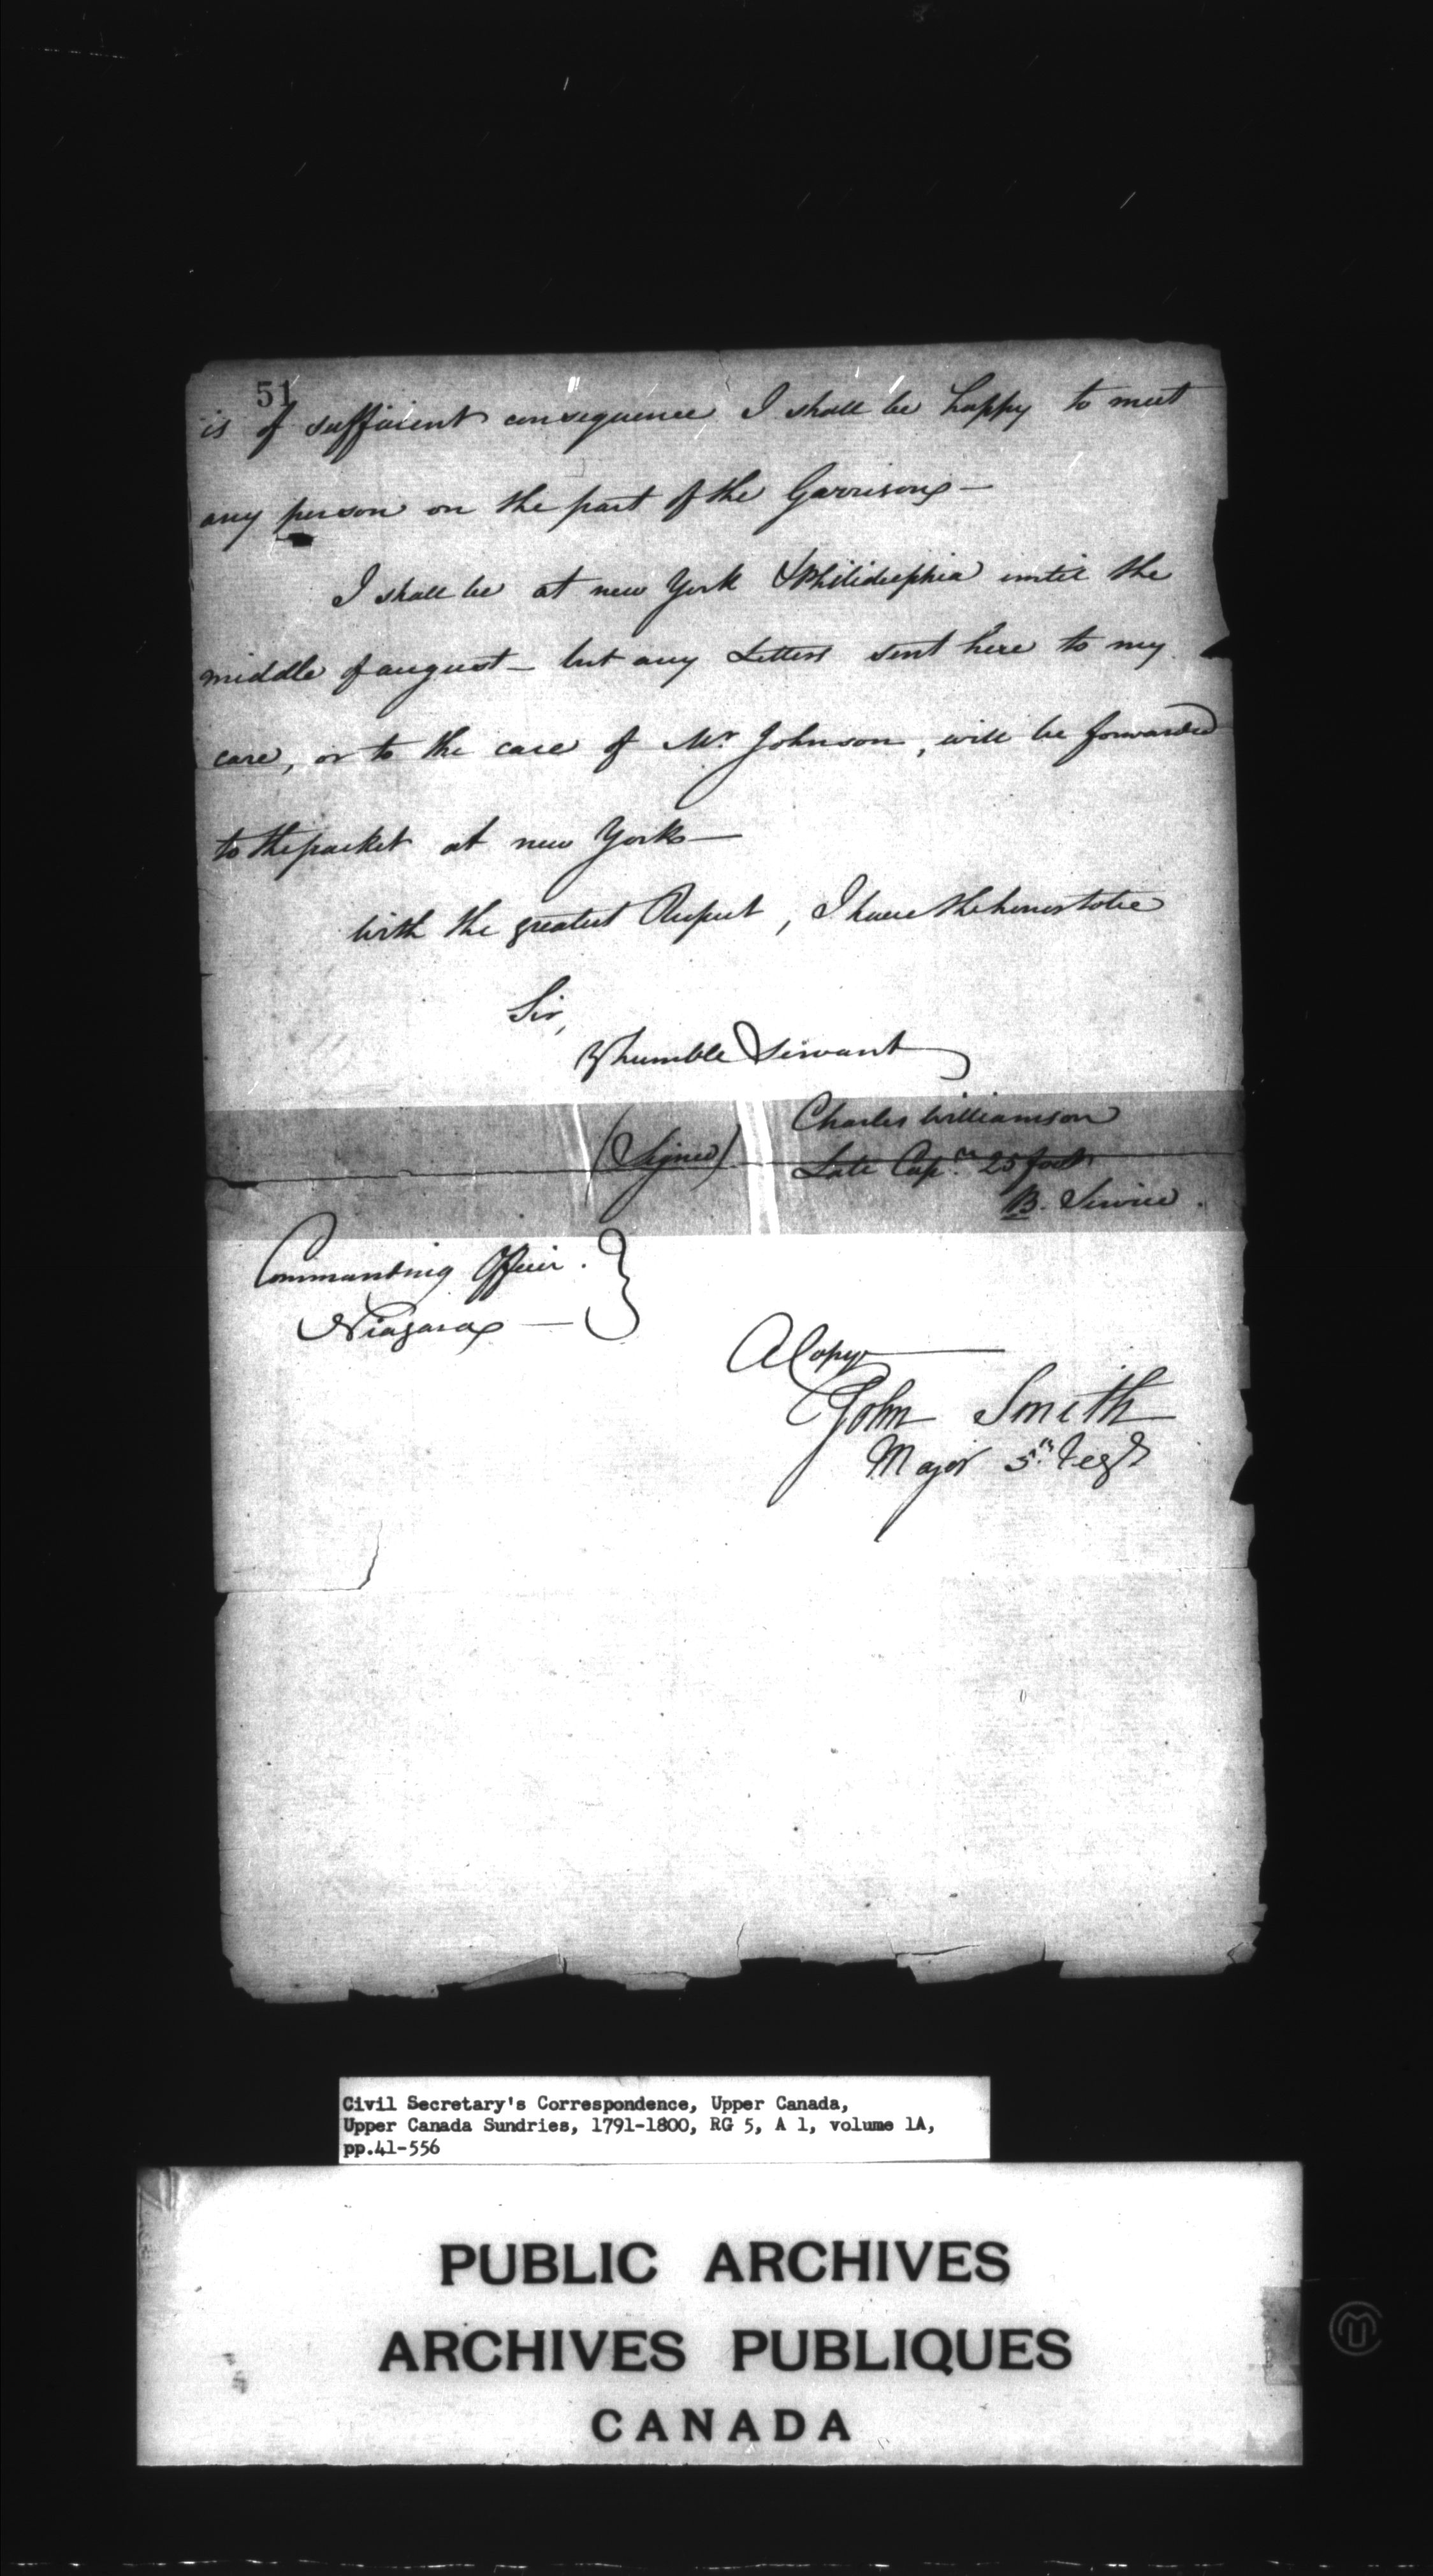 51
is of sufficient consequence I shall be happy to meet
any person on the part of the Garrison —
I shall be at new York & Philidelphia until the
middle of august — but any Letters sent here to my
care, or to the care of Mr. Johnson, will be forwarded
to the packet at new York —
With the greatest Respect, I have the honor to be
Sir,
Yr humble Servant
(Signed) Charles Williamson
Late Capn. 25 foot
B. Service.
Commanding Officer. }
Niagara — }
A Copy —
John Smith
Major 5th Regt
Civil Secretary's Correspondence, Upper Canada,
Upper Canada Sundries, 1791-1800, RG 5, A 1, volume 1A,
pp.41-556
PUBLIC ARCHIVES
ARCHIVES PUBLIQUES
CANADA